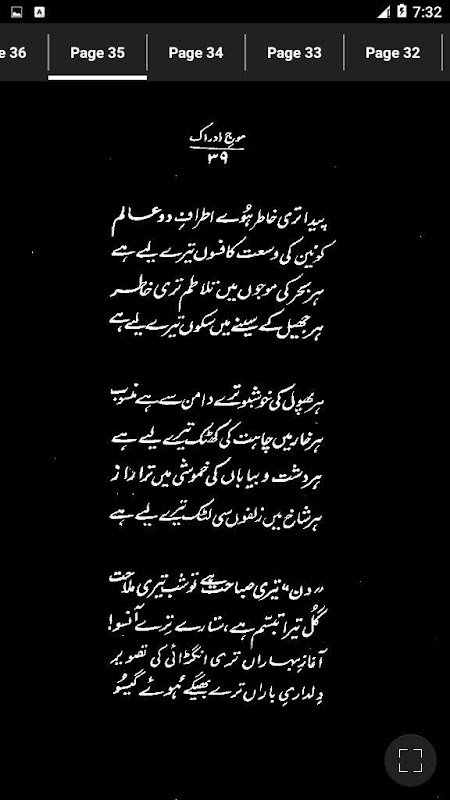 7:32
Page 36 Page 35 Page 34 Page 33 Page 32
موجِ ادراک
۳۹
پیدا تری خاطر ہُوئے اطرافِ دو عالم
کونین کی وسعت کا فسوں تیرے لیے ہے
ہر بحر کی موجوں میں تلاطم تری خاطر
ہر جھیل کے سینے میں سکوں تیرے لیے ہے
ہر پھول کی خوشبو ترے دامن سے ہے منسوب
ہر خار میں چاہت کی کھٹک تیرے لیے ہے
ہر دشت و بیاباں کی خموشی میں ترا راز
ہر شاخ میں زلفوں سی لٹک تیرے لیے ہے
"دن" تیری صباحت ہے تو شب تیری ملاحت
گُل تیرا تبسّم ہے، ستارے ترے آنسو!
آغازِ بہاراں تری انگڑائی کی تصویر
دِلداریِ باراں ترے بھیگے ہُوئے گیسُو